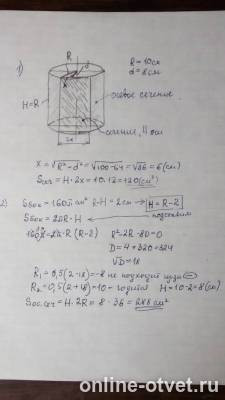 1)
R
R = 10см
d = 8см
H=R
осевое сечение
сечение, || оси
2x
x = √R²-d² = √100-64 = √36 = 6 (см)
Sсеч = H·2x = 10·12 = 120 (см²)
2) Sбок = 160π см² R-H = 2см → H = R-2
Sбок = 2πR·H ← подставим
R²-2R-80=0
D = 4+320=324
√D = 18
R₁ = 0,5(2-18) = -8 не подходит
R₂ = 0,5(2+18) = 10 - годится H = 10-2 = 8(см)
online-otvet.ru